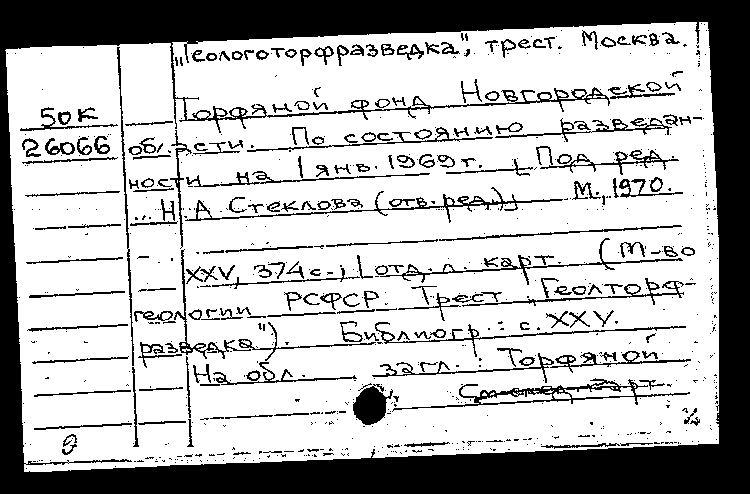 „Геологоторфразведка", трест. Москва.
50К Торфяной фонд Новгородской
26066 области. По состоянию разведан-
ности на 1 янв. 1969 г. [Под ред.
... Н А Стеклова (отв. ред.)] М., 1970.
XXV, 374 с., 1 отд. л. карт. (М-во
геологии РСФСР. Трест „Геолторф-
разведка"). Библиогр.: с. XXV.
На обл. загл.: Торфяной
См. след. карт